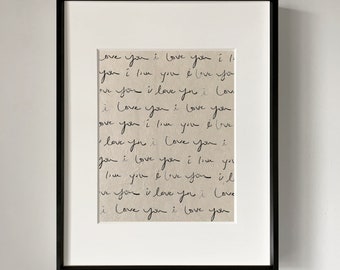 love you i love you i lo
i love you i love you i
ove you i love you i love
i love you i love you
ove you i love you i love
i love you i love you
you i love you i love
i love you i love you
ove you i love you i love
i love you i love you